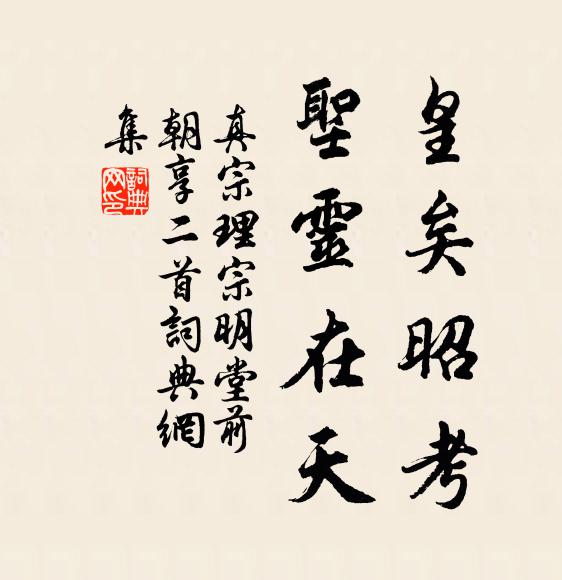 皇矣昭考
聖靈在天
真宗理宗明堂前
朝享二首詞典網
集
詞典
网印